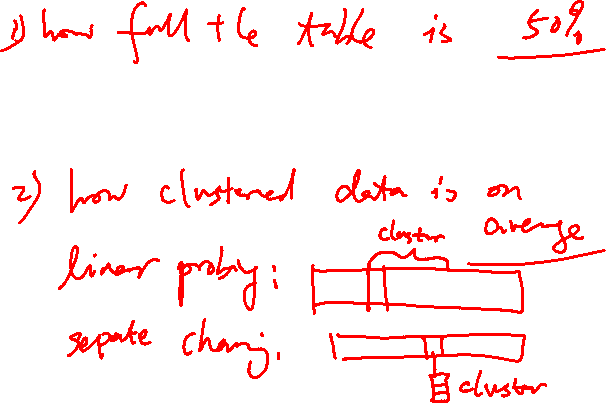 1) how full the table is 50%
2) how clustered data is on average
cluster
linear probing:
seperate chaing.
cluster